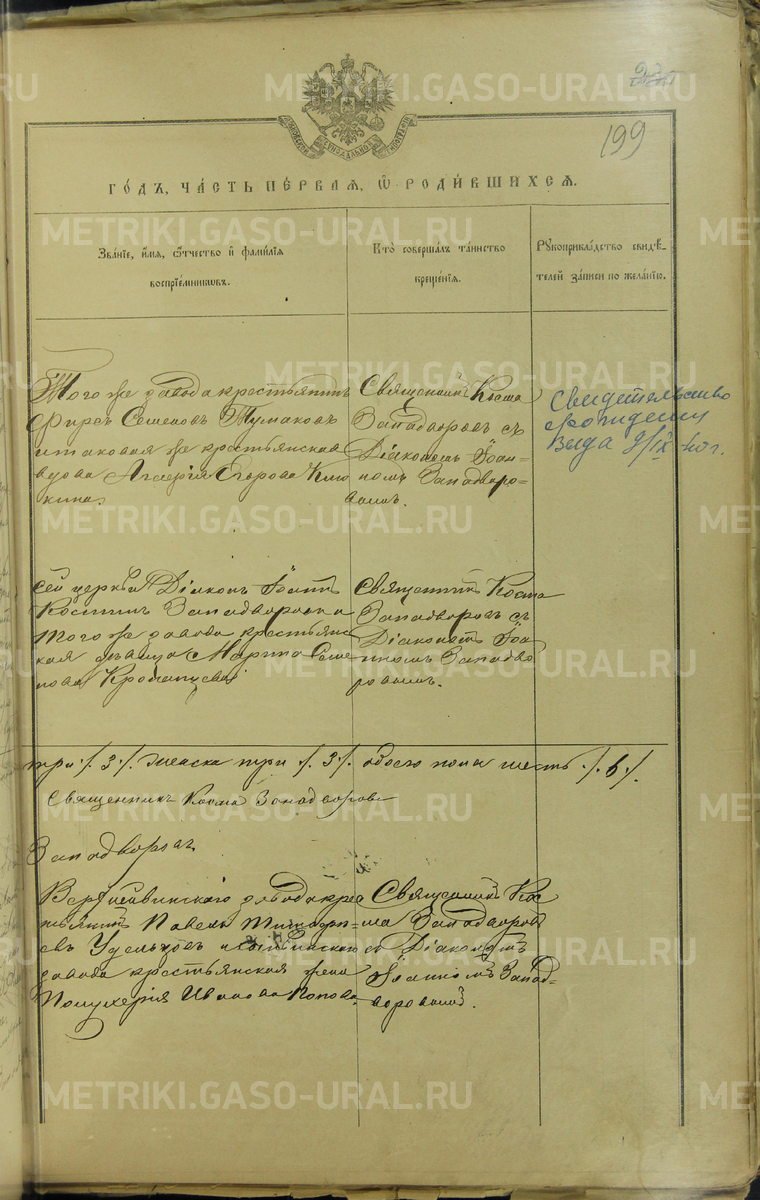 METRIKI.GASO-URAL.RU
199
го́дъ, ча́сть пе́рваѧ, ѡ҆ роди́вшихсѧ.
Зва́нїе, и҆́мѧ, ѻ҆́тчество и҆ фами́лїѧ
воспрїе́мникѡвъ.
Кто̀ соверша́лъ та́инство
креще́нїѧ.
Рꙋкоприкла́дство свидѣ́-
телей за́писи по жела́нїю.
Того же завода крестьянинъ
Фирсъ Семеновъ Тумаковъ
и таковая же крестьянская
вдова Егорова
кина.
Священникъ Косма
Западворовъ съ
Діакономъ Іоан-
номъ Западворо-
вымъ.
Свидетельство
о рождении
Выда 9/IX 40 г.
Сей церкви Діаконъ Іоаннъ
Космин Западворовъ и
того же завода крестьянс
кая девица Марина Семе
нова
Священникъ Косма
Западворовъ съ
Діакономъ Іоа-
нномъ Западво
ровымъ.
три ./. 3 ./. женска три ./. 3 ./. обоего пола шесть ./. 6 ./.
Священникъ Косма Западворовъ
Западворовъ
завода крес
тьянинъ Павелъ
евъ и
завода крестьянская жена
Иванова Попова.
Священникъ Кос
ма Западворовъ
съ Діакономъ
Іоанномъ Запад-
воровымъ.